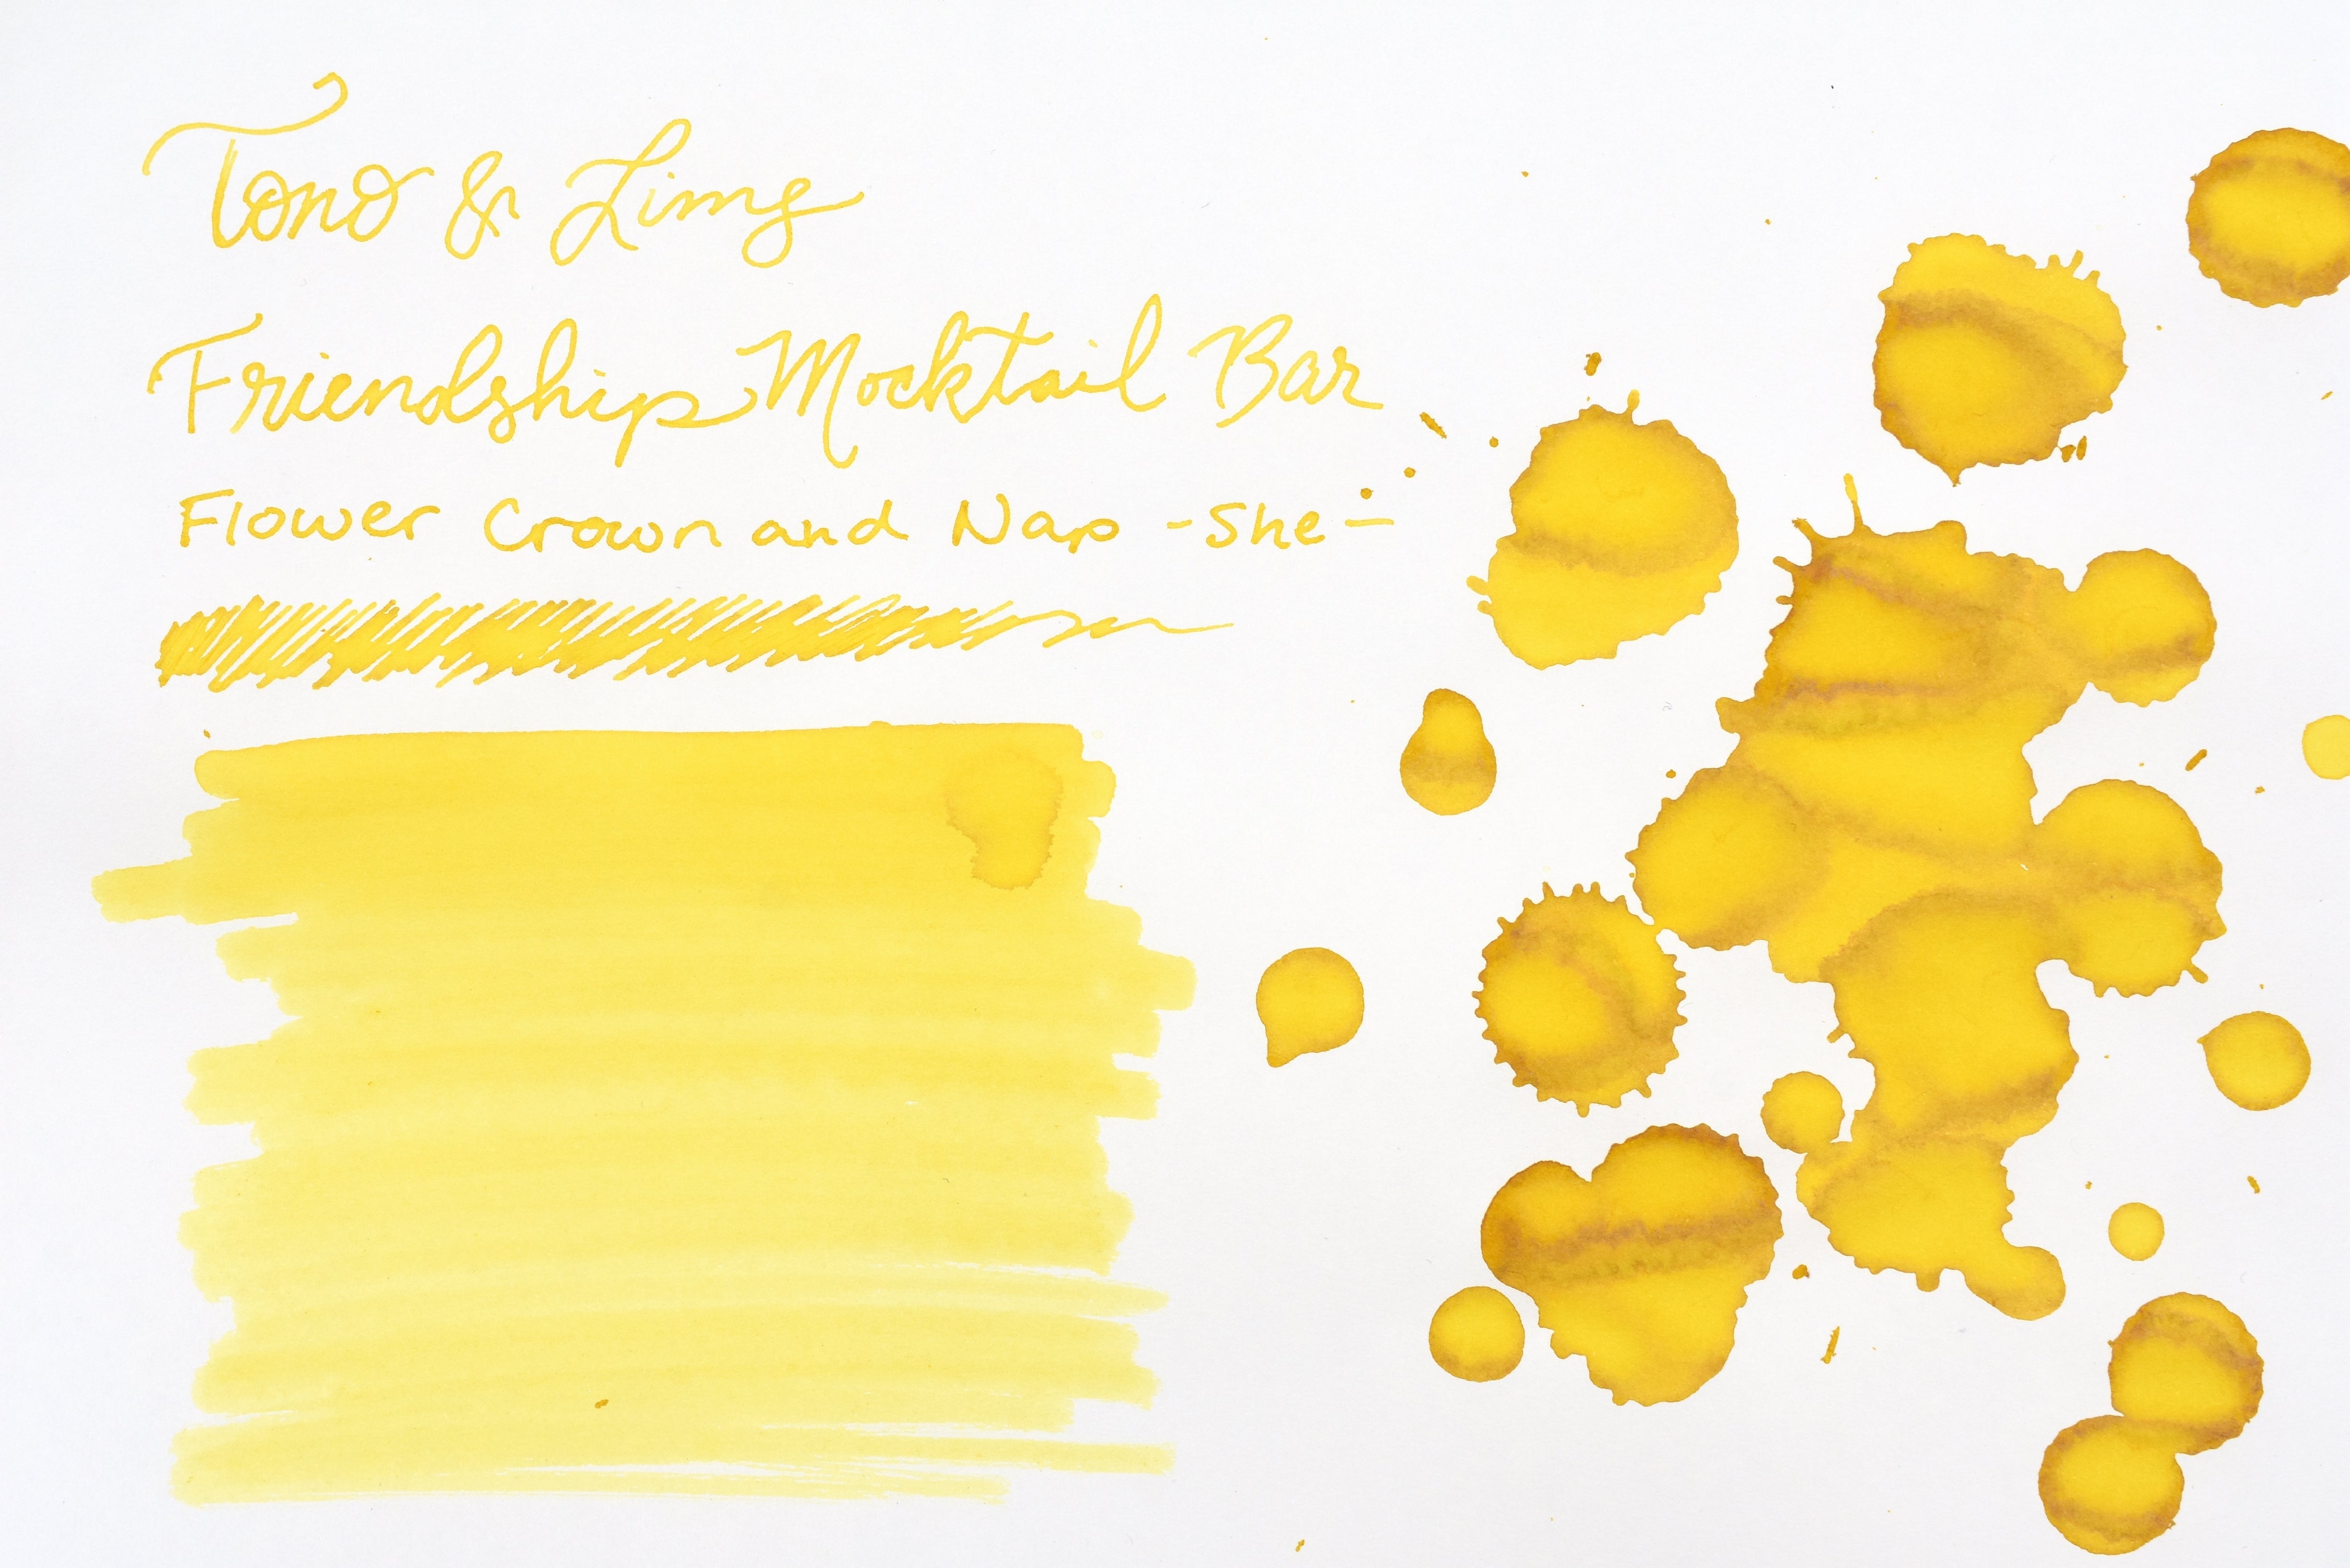 Tono & Lims
Friendship Mocktail Bar
Flower Crown and Nap -She-